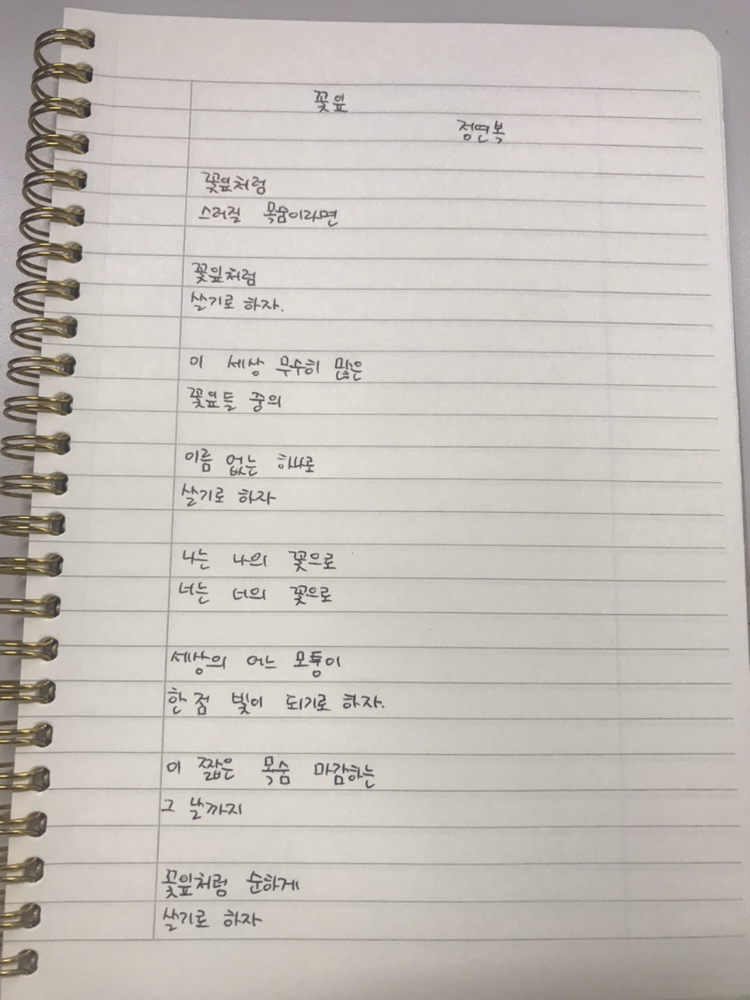 꽃잎
정연복
꽃잎처럼
스러질 목숨이라면
꽃잎처럼
살기로 하자.
이 세상 무수히 많은
꽃잎들 중의
이름 없는 하나로
살기로 하자
나는 나의 꽃으로
너는 너의 꽃으로
세상의 어느 모퉁이
한 점 빛이 되기로 하자.
이 짧은 목숨 마감하는
그 날까지
꽃잎처럼 순하게
살기로 하자